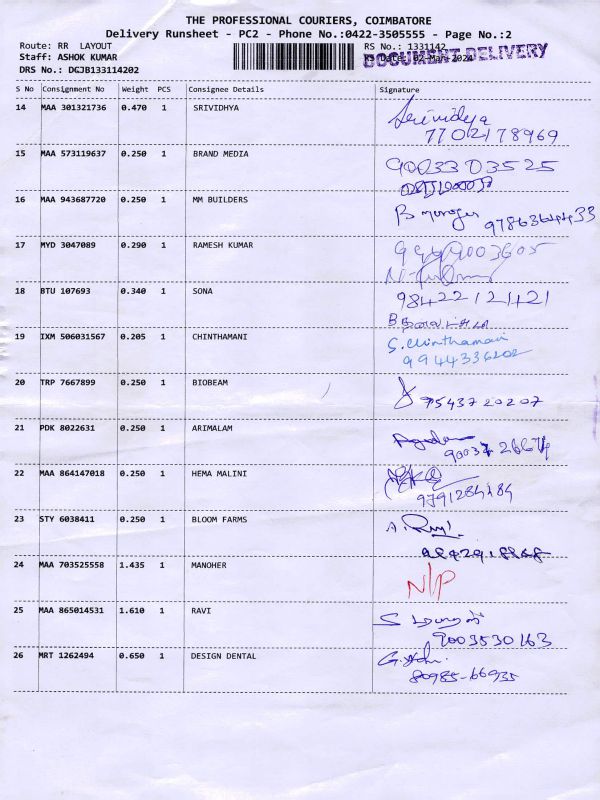 THE PROFESSIONAL COURIERS, COIMBATORE
Delivery Runsheet - PC2 - Phone No.:0422-3505555 - Page No.:2
Route: RR LAYOUT
RS No.: 1331142
Staff: ASHOK KUMAR
RS Date: 02-Mar-2024
DOCUMENT DELIVERY
DRS No.: DGJB133114202
S No Consignment No Weight PCS Consignee Details Signature
14 MAA 301321736 0.470 1 SRIVIDHYA Srividya
7702178969
15 MAA 573119637 0.250 1 BRAND MEDIA 9003303525
16 MAA 943687720 0.250 1 MM BUILDERS B manager 9786364433
17 MYD 3047089 0.290 1 RAMESH KUMAR
18 BTU 107693 0.340 1 SONA 9842212421
19 IXM 506031567 0.205 1 CHINTHAMANI S. Chinthamani
9944336202
20 TRP 7667899 0.250 1 BIOBEAM 9543720207
21 PDK 8022631 0.250 1 ARIMALAM
22 MAA 864147018 0.250 1 HEMA MALINI
9791284184
23 STY 6038411 0.250 1 BLOOM FARMS
24 MAA 703525558 1.435 1 MANOHER N/P
25 MAA 865014531 1.610 1 RAVI
9003530163
26 MRT 1262494 0.650 1 DESIGN DENTAL
80985-66935